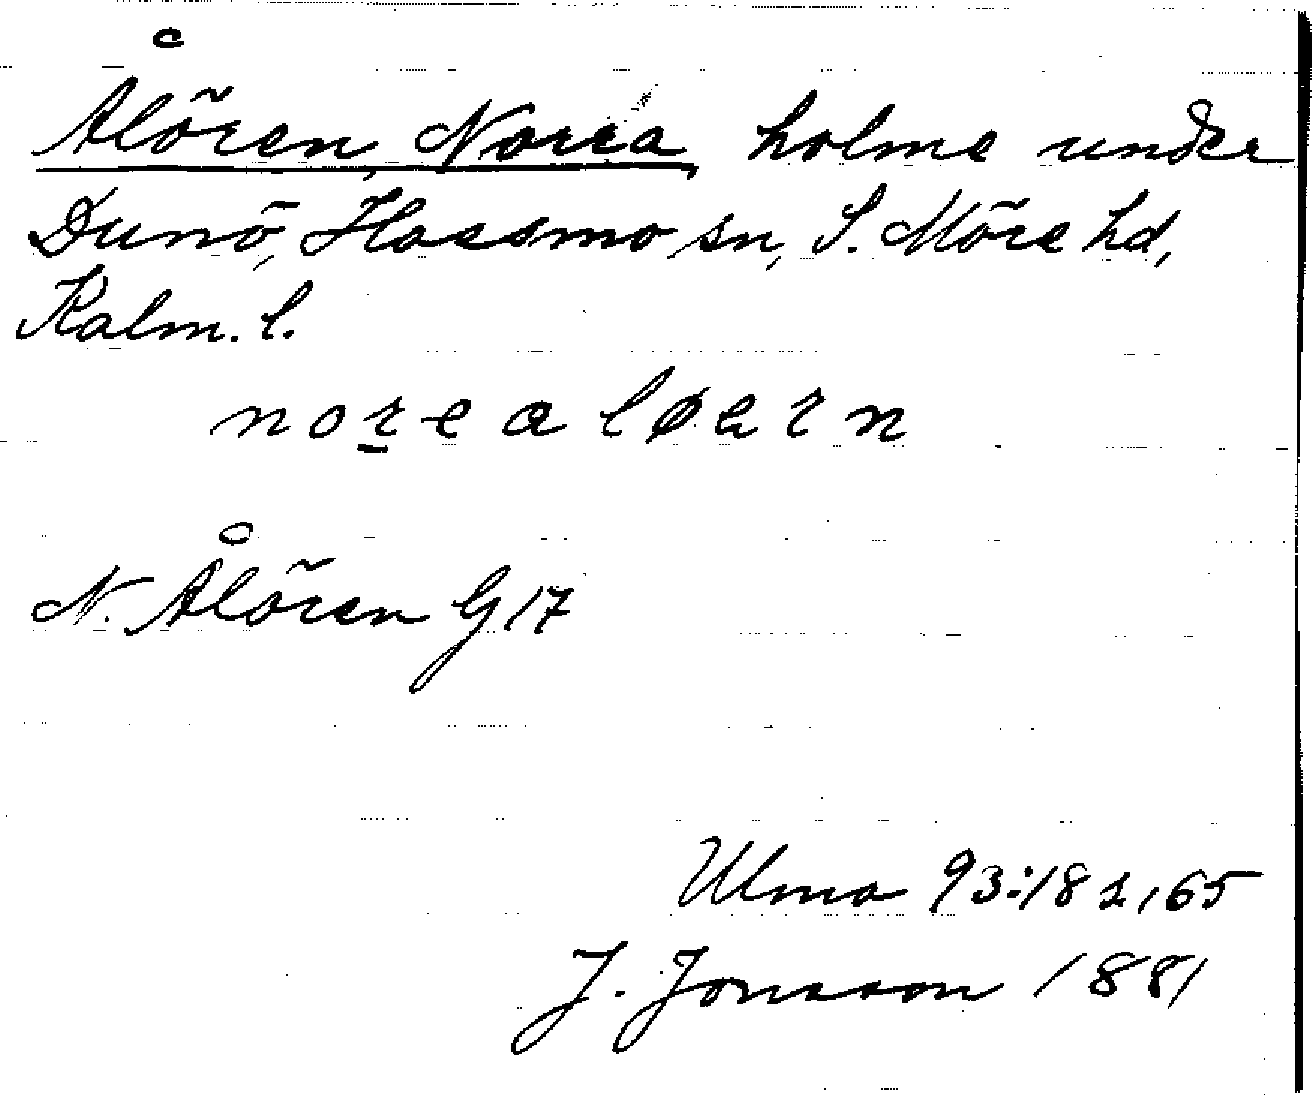 Ålören, Norra, holme under
Dunö, Hossmo sn, S. Möre hd,
Kalm. l.
norealøern
N. Ålören G 17
Ulma 93:182,65
J. Jonsson 1881